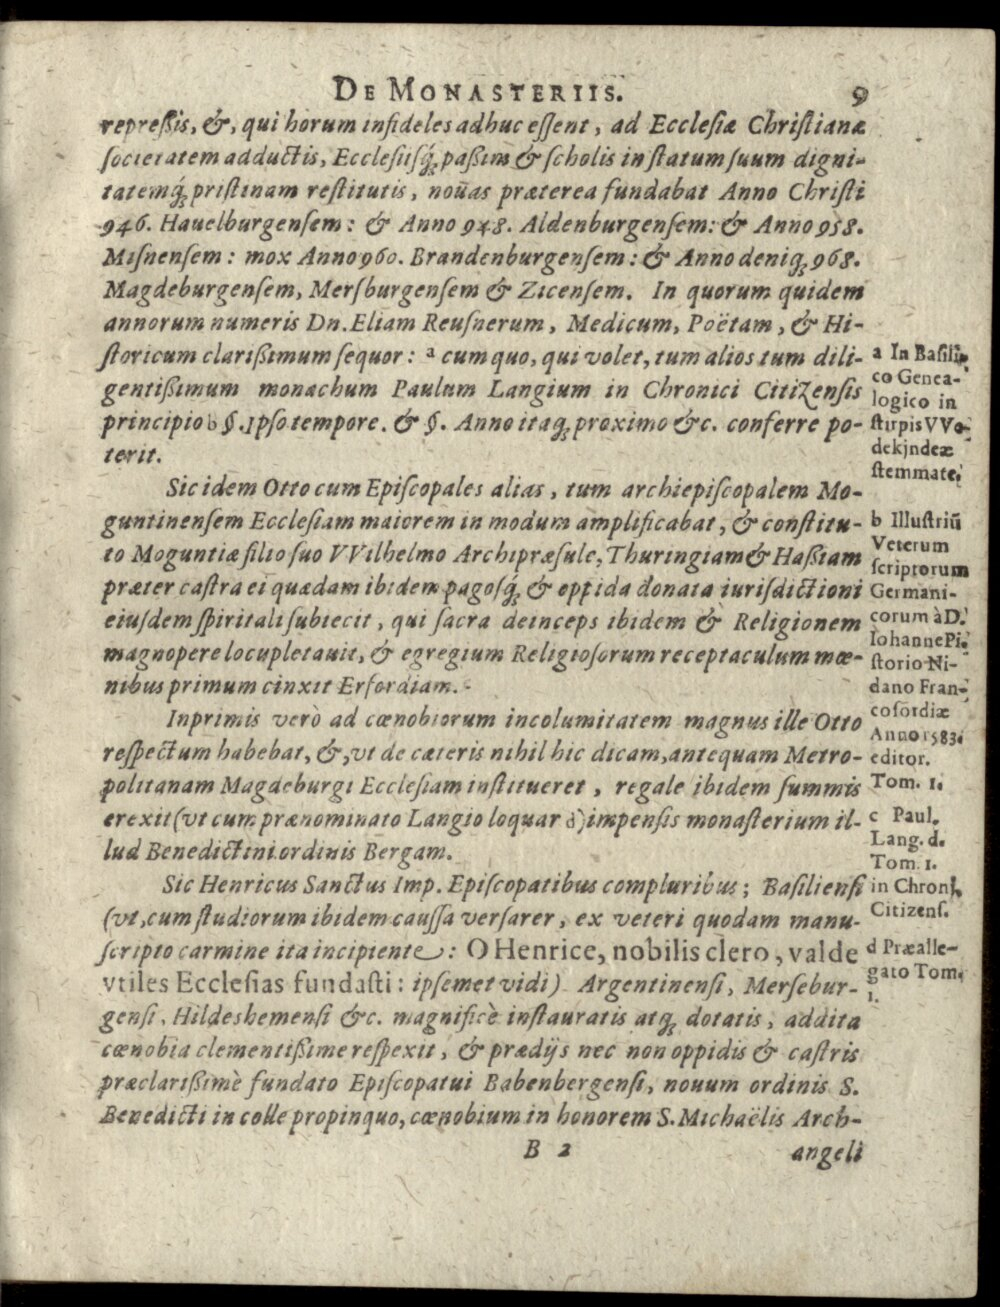 DE MONASTERIIS. 9
repreßis, &, qui horum infideles adhuc eſſent, ad Eccleſiæ Chriſtianæ
ſocietatem adductis, Eccleſiiſq́; paßim & ſcholis in ſtatum ſuum digni-
tatemq́; priſtinam reſtitutis, nouas præterea fundabat Anno Chriſti
946. Hauelburgenſem: & Anno 948. Aldenburgenſem: & Anno 958.
Miſnenſem: mox Anno 960. Brandenburgenſem: & Anno deniq; 968.
Magdeburgenſem, Merſburgenſem & Zicenſem. In quorum quidem
annorum numeris Dn. Eliam Reuſnerum, Medicum, Poëtam, & Hi-
ſtoricum clarißimum ſequor: a cum quo, qui volet, tum alios tum dili-
gentißimum monachum Paulum Langium in Chronici Citizenſis
principio b §. Ipſo tempore. & §. Anno itaq; proximo &c. conferre po-
terit.
Sic idem Otto cum Epiſcopales alias, tum archiepiſcopalem Mo-
guntinenſem Eccleſiam maiorem in modum amplificabat, & conſtitu-
to Moguntiæ filio ſuo VVilhelmo Archipræſule, Thuringiam & Haßiam
præter caſtra ei quædam ibidem pagoſq́; & oppida donata iuriſdictioni
eiuſdem ſpiritali ſubiecit, qui ſacra deinceps ibidem & Religionem
magnopere locupletauit, & egregium Religioſorum receptaculum mœ-
nibus primum cinxit Erfordiam.
Inprimis verò ad cœnobiorum incolumitatem magnus ille Otto
reſpectum habebat, &, vt de cæteris nihil hic dicam, antequam Metro-
politanam Magdeburgi Eccleſiam inſtitueret, regale ibidem ſummis
erexit (vt cum prænominato Langio loquar d) impenſis monaſterium il-
lud Benedictini ordinis Bergam.
Sic Henricus Sanctus Imp. Epiſcopatibus compluribus; Baſilienſi
(vt, cum ſtudiorum ibidem cauſſa verſarer, ex veteri quodam manu-
ſcripto carmine ita incipiente: O Henrice, nobilis clero, valde
vtiles Eccleſias fundaſti: ipſemet vidi) Argentinenſi, Merſebur-
genſi, Hildeshemenſi &c. magnificè inſtauratis atq; dotatis, addita
cœnobia clementißime reſpexit, & prædijs nec non oppidis & caſtris
præclarißimè fundato Epiſcopatui Babenbergenſi, nouum ordinis S.
Benedicti in colle propinquo, cœnobium in honorem S. Michaëlis Arch-
B 2 angeli
a In Baſili-
co Genea-
logico in
ſtirpis VVe-
dekindeæ
ſtemmate.
b Illuſtriū
Veterum
ſcriptorum
Germani-
corum à D.
Iohanne Pi-
ſtorio Ni-
dano Fran-
cofordiæ
Anno 1583.
editor.
Tom. 1.
c Paul.
Lang. d.
Tom. 1.
in Chron.
Citizenſ.
d Prælle-
gato Tom.
1.